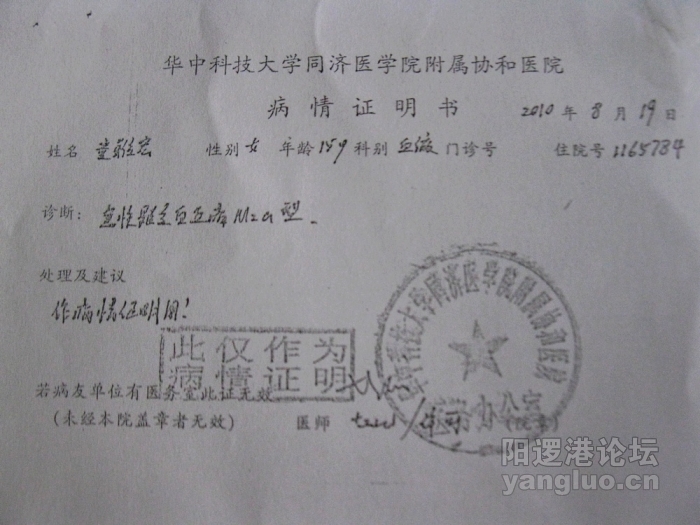 华中科技大学同济医学院附属协和医院
病情证明书 2010年8月19日
姓名 性别女 年龄15y 科别血液 门诊号 住院号1165784
诊断：急性髓系白血病M2a型.
处理及建议
作病情证明用！
此仅作为
病情证明
若病友单位有医务室此证无效
(未经本院盖章者无效) 医师
华中科技大学同济医学院附属协和医院
办公室
阳逻港论坛
yangluo.cn